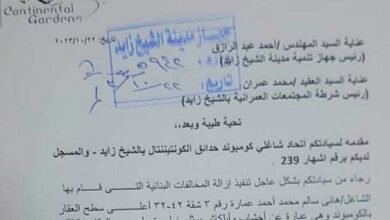 Continental
Gardens
تاريخ: ٢٠٢٣/١٠/٢٢
عناية السيد المهندس /أحمد عبد الرازق
(رئيس جهاز تنمية مدينة الشيخ زايد)
جهاز مدينة الشيخ زايد
٥٩٤٢
تاريخ: ٢٢ / ١٠
عناية السيد العقيد /محمد عمران
(رئيس شرطة المجتمعات العمرانية بالشيخ زايد)
تحية طيبة وبعد،،
مقدمه لسيادتكم اتحاد شاغلي كومبوند حدائق الكونتيننتال بالشيخ زايد - والمسجل
لديكم برقم اشهار 239
رجاء من سيادتكم بشكل عاجل تنفيذ إزالة المخالفات البنائية التى قام بها
الشاغل/هانى سالم محمد أحمد عمارة رقم 3 شقة ٤٢-٣٢ أعلى سطح العقار